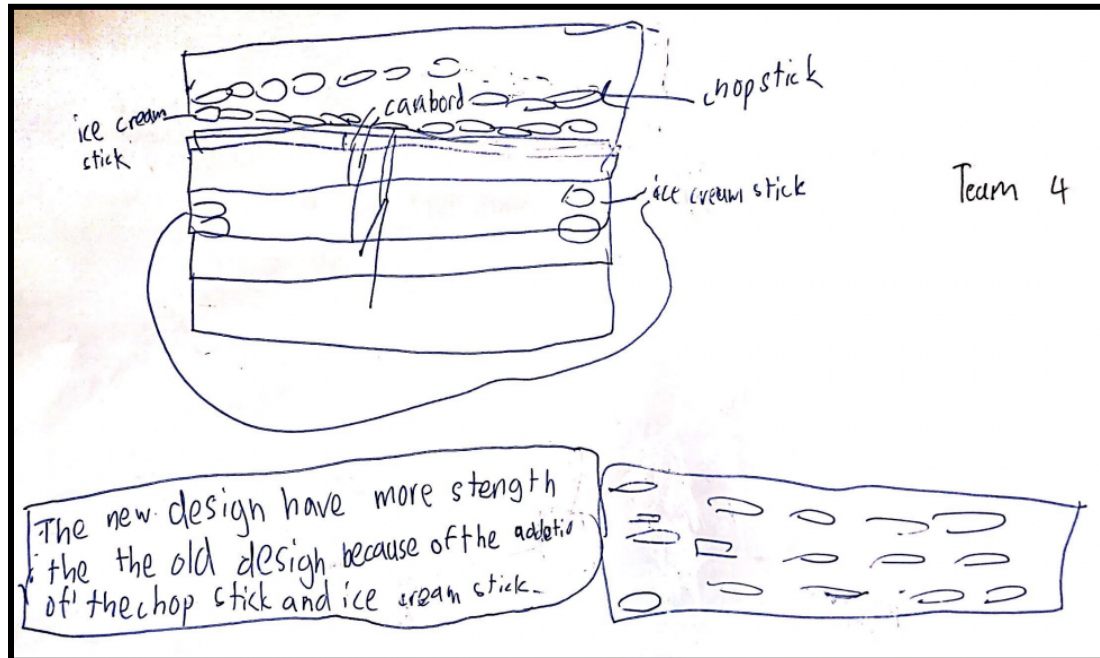 chopstick
carabord
ice cream
stick
ice cream stick
Team 4
The new design have more stength
the the old design because of the addetio
of the chop stick and ice cream stick.